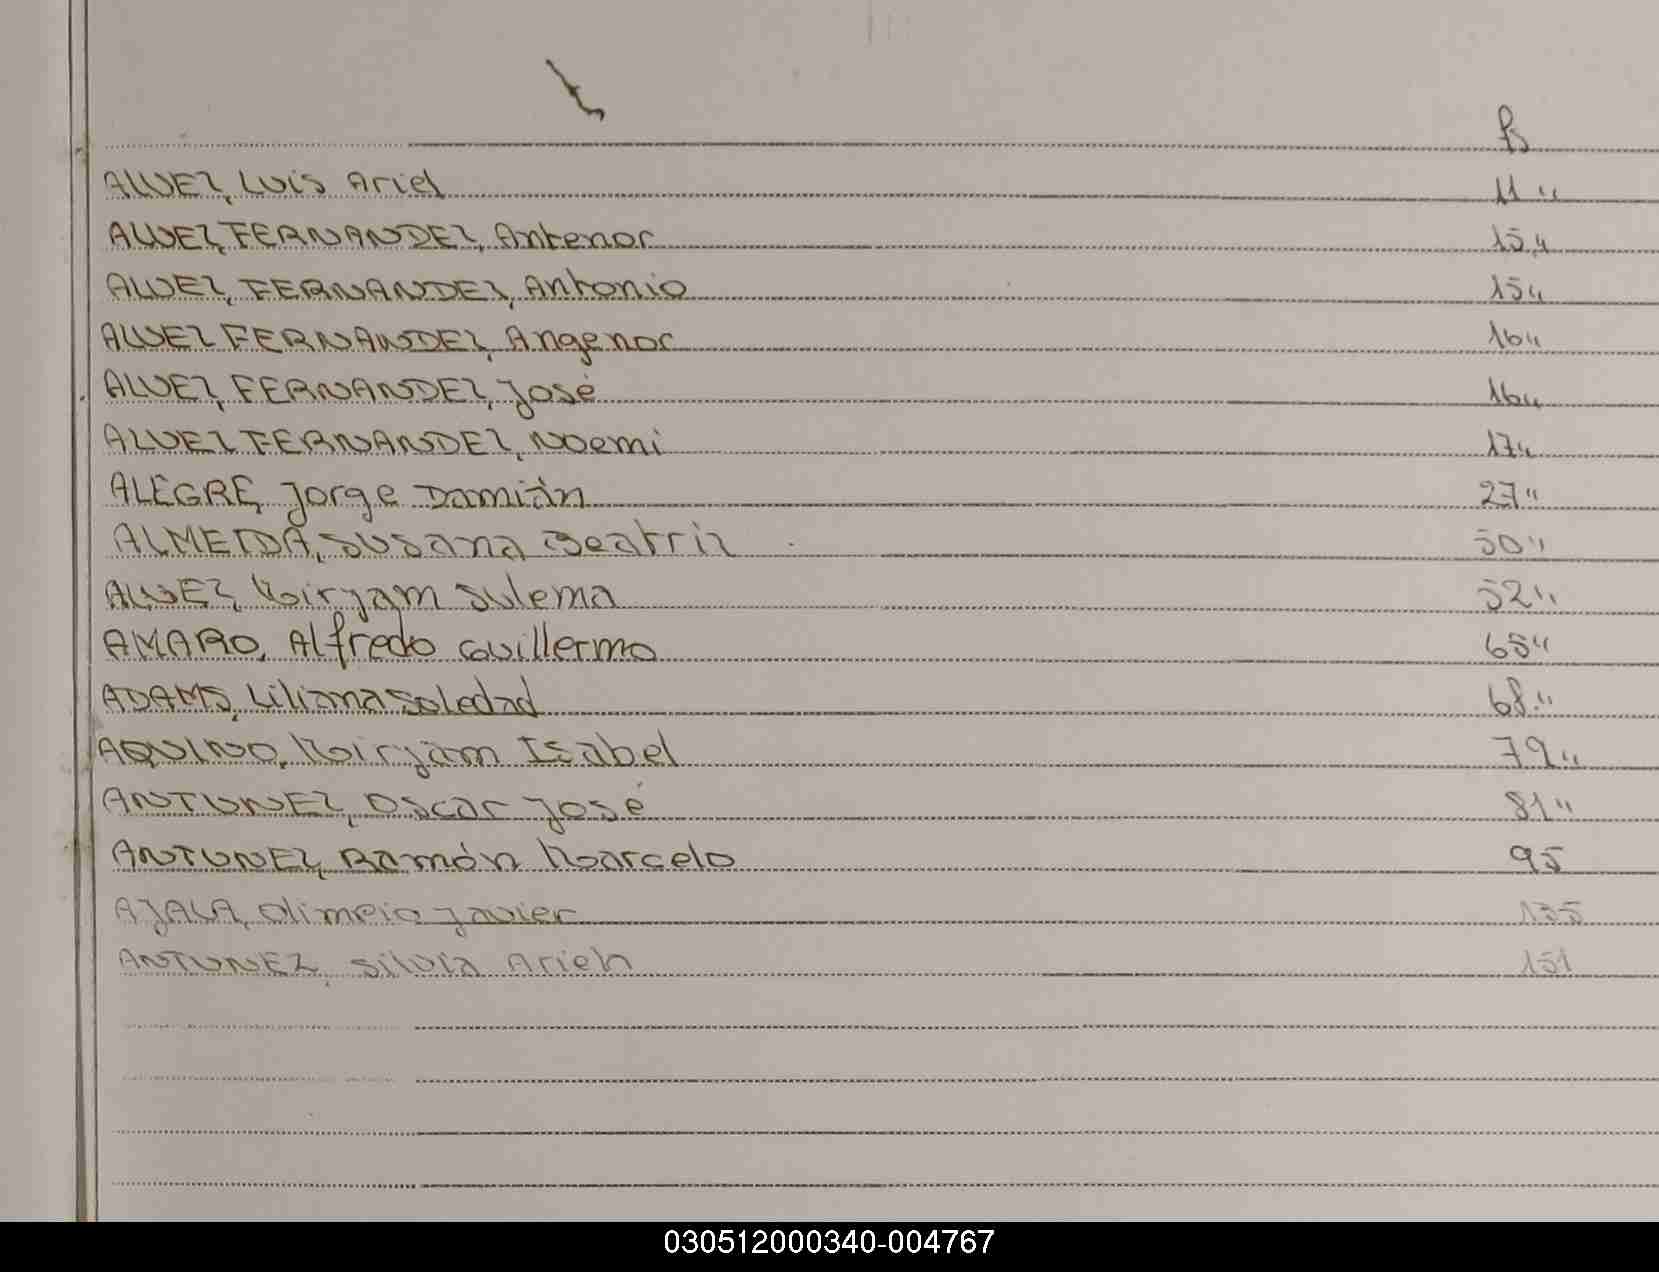 fs
ALVEZ, Luis Ariel 11 "
ALVEZ, FERNANDEZ, Antenor 15 "
ALVEZ, FERNANDEZ, Antonio 15 "
ALVEZ FERNANDEZ, Angenor 16 "
ALVEZ, FERNANDEZ, José 16 "
ALVEZ FERNANDEZ, Noemi 17 "
ALEGRE, Jorge Damián 27 "
ALMEIDA, Susana Beatriz 50 "
ALVEZ, Mirjam Sulema 52 "
AMARO, Alfredo Guillermo 65 "
ADAMS, Liliana Soledad 68 "
AQUINO, Mirjam Isabel 79 "
ANTUNEZ, Oscar José 81 "
ANTUNEZ, Ramón Marcelo 95
AJALA, Olimpio Javier 135
ANTUNEZ, Silvia 151
030512000340-004767